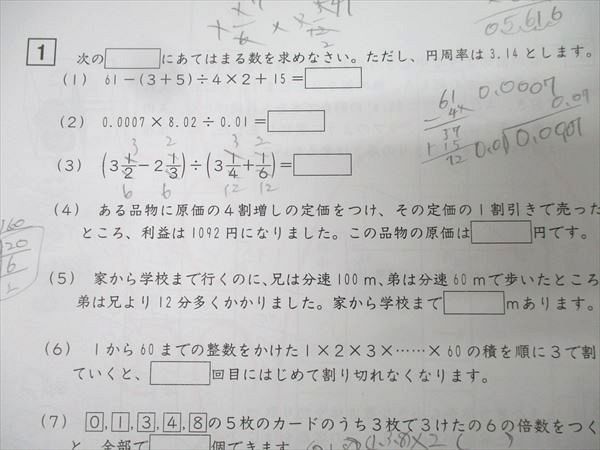 05.616
1 次の□にあてはまる数を求めなさい。ただし、円周率は3.14とします。
(1) 61－(3＋5)÷4×2＋15＝□
(2) 0.0007×8.02÷0.01＝□
(3) (3 1/2－2 1/3)÷(3 1/4＋1/6)＝□
(4) ある品物に原価の4割増しの定価をつけ、その定価の1割引きで売った
ところ、利益は1092円になりました。この品物の原価は□円です。
(5) 家から学校まで行くのに、兄は分速100m、弟は分速60mで歩いたところ
弟は兄より12分多くかかりました。家から学校まで□mあります。
(6) 1から60までの整数をかけた1×2×3×……×60の積を順に3で割
ていくと、□回目にはじめて割り切れなくなります。
(7) 0,1,3,4,8の5枚のカードのうち3枚で3けたの6の倍数をつく
と、全部で□個できます。
61
37
15
0.0007
0.07
3 2
6 6
3 2
12 12
160
20
6